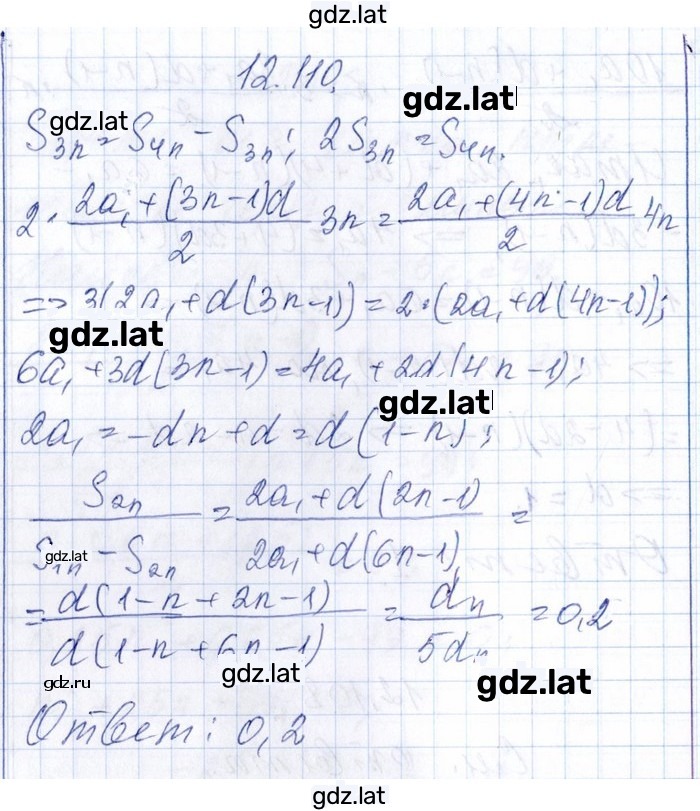 gdz.lat
12.110.
gdz.lat
gdz.lat
S₃ₙ = S₄ₙ − S₃ₙ; 2S₃ₙ = S₄ₙ.
2 · (2a₁ + (3n−1)d)/2 3n = (2a₁ + (4n−1)d)/2 4n
=> 3(2a₁ + d(3n−1)) = 2·(2a₁ + d(4n−1));
gdz.lat
6a₁ + 3d(3n−1) = 4a₁ + 2d(4n−1);
gdz.lat
2a₁ = −dn + d = d(1−n);
S₂ₙ/(S₁ₙ − S₂ₙ) = (2a₁ + d(2n−1))/(2a₁ + d(6n−1)) =
gdz.lat
= d(1−n+2n−1)/d(1−n+6n−1) = dn/5dn = 0,2
gdz.ru
gdz.lat
gdz.lat
Ответ: 0,2
gdz.lat